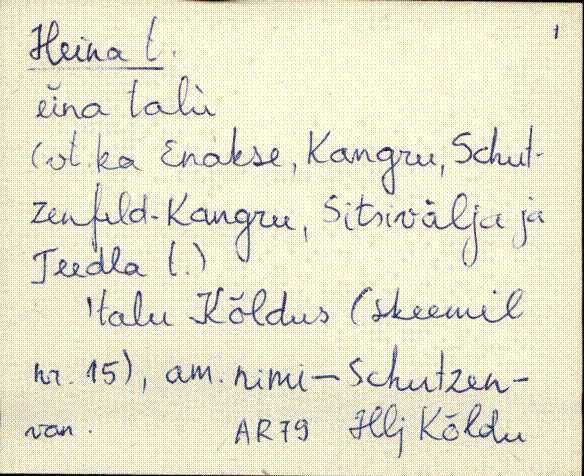 Heina t. 1
eina talù
(vt. ka Enakse, Kangru, Schut-
zenfeld-Kangru, Sitsivälja ja
Teedla t.)
'talu Kõldus (skeemil
nr. 15), am. nimi – Schutzen-
van. AR79 Hlj Kõldu